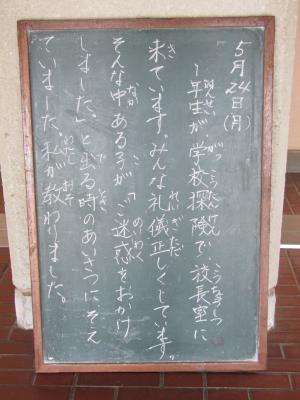 5月24日(月)
1年生が学校探険で校長室に
来ています。みんな礼儀正しくしています。
そんな中ある子が「ご迷惑をおかけ
しました」と出る時のあいさつにそえ
ていました。私が教わりました。